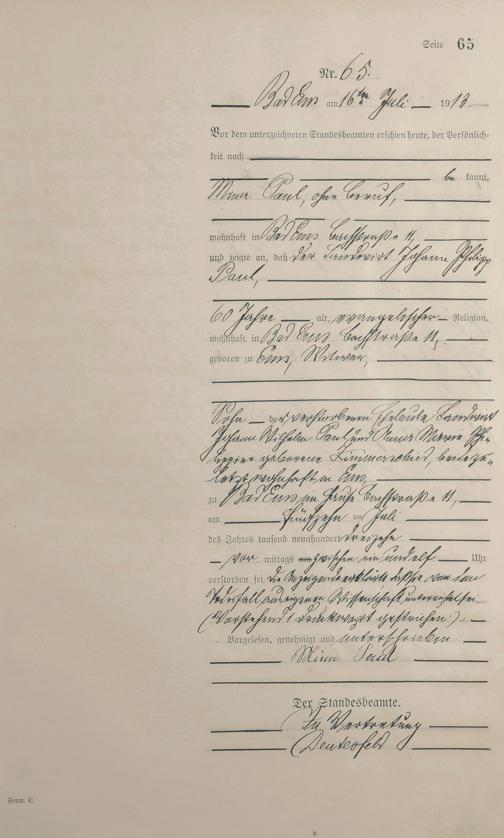 Seite 65
Nr. 65.
Bad Ems am 16ten Juli 1913
Vor dem unterzeichneten Standesbeamten erschien heute, der Persönlich-
keit nach
be kannt,
Mina Paul, ohne Beruf,
wohnhaft in Bad Ems Bachstraße 11,
und zeigte an, daß der Landwirt Johann Philipp
Paul,
60 Jahre alt, evangelischer Religion,
wohnhaft in Bad Ems Bachstraße 11,
geboren zu Ems, Witwer,
Sohn der verstorbenen Eheleute Landwirt
Johann Wilhelm Paul und Anna Maria Phi-
lippine geborene beide zu-
letzt wohnhaft in Ems,
zu Bad Ems im Hause Bachstraße 11,
am fünfzehn ten Juli
des Jahres tausend neunhundert dreizehn
vor mittags um zwischen ein und elf Uhr
verstorben sei. Die Anzeigende erklärte daß sie von dem
Todesfall aus eigener Wissenschaft unterrichtet sei.
(Vorstehend 1 Druckwort gestrichen.)
Vorgelesen, genehmigt und unterschrieben
Mina Paul
Der Standesbeamte.
In Vertretung
Form. C.